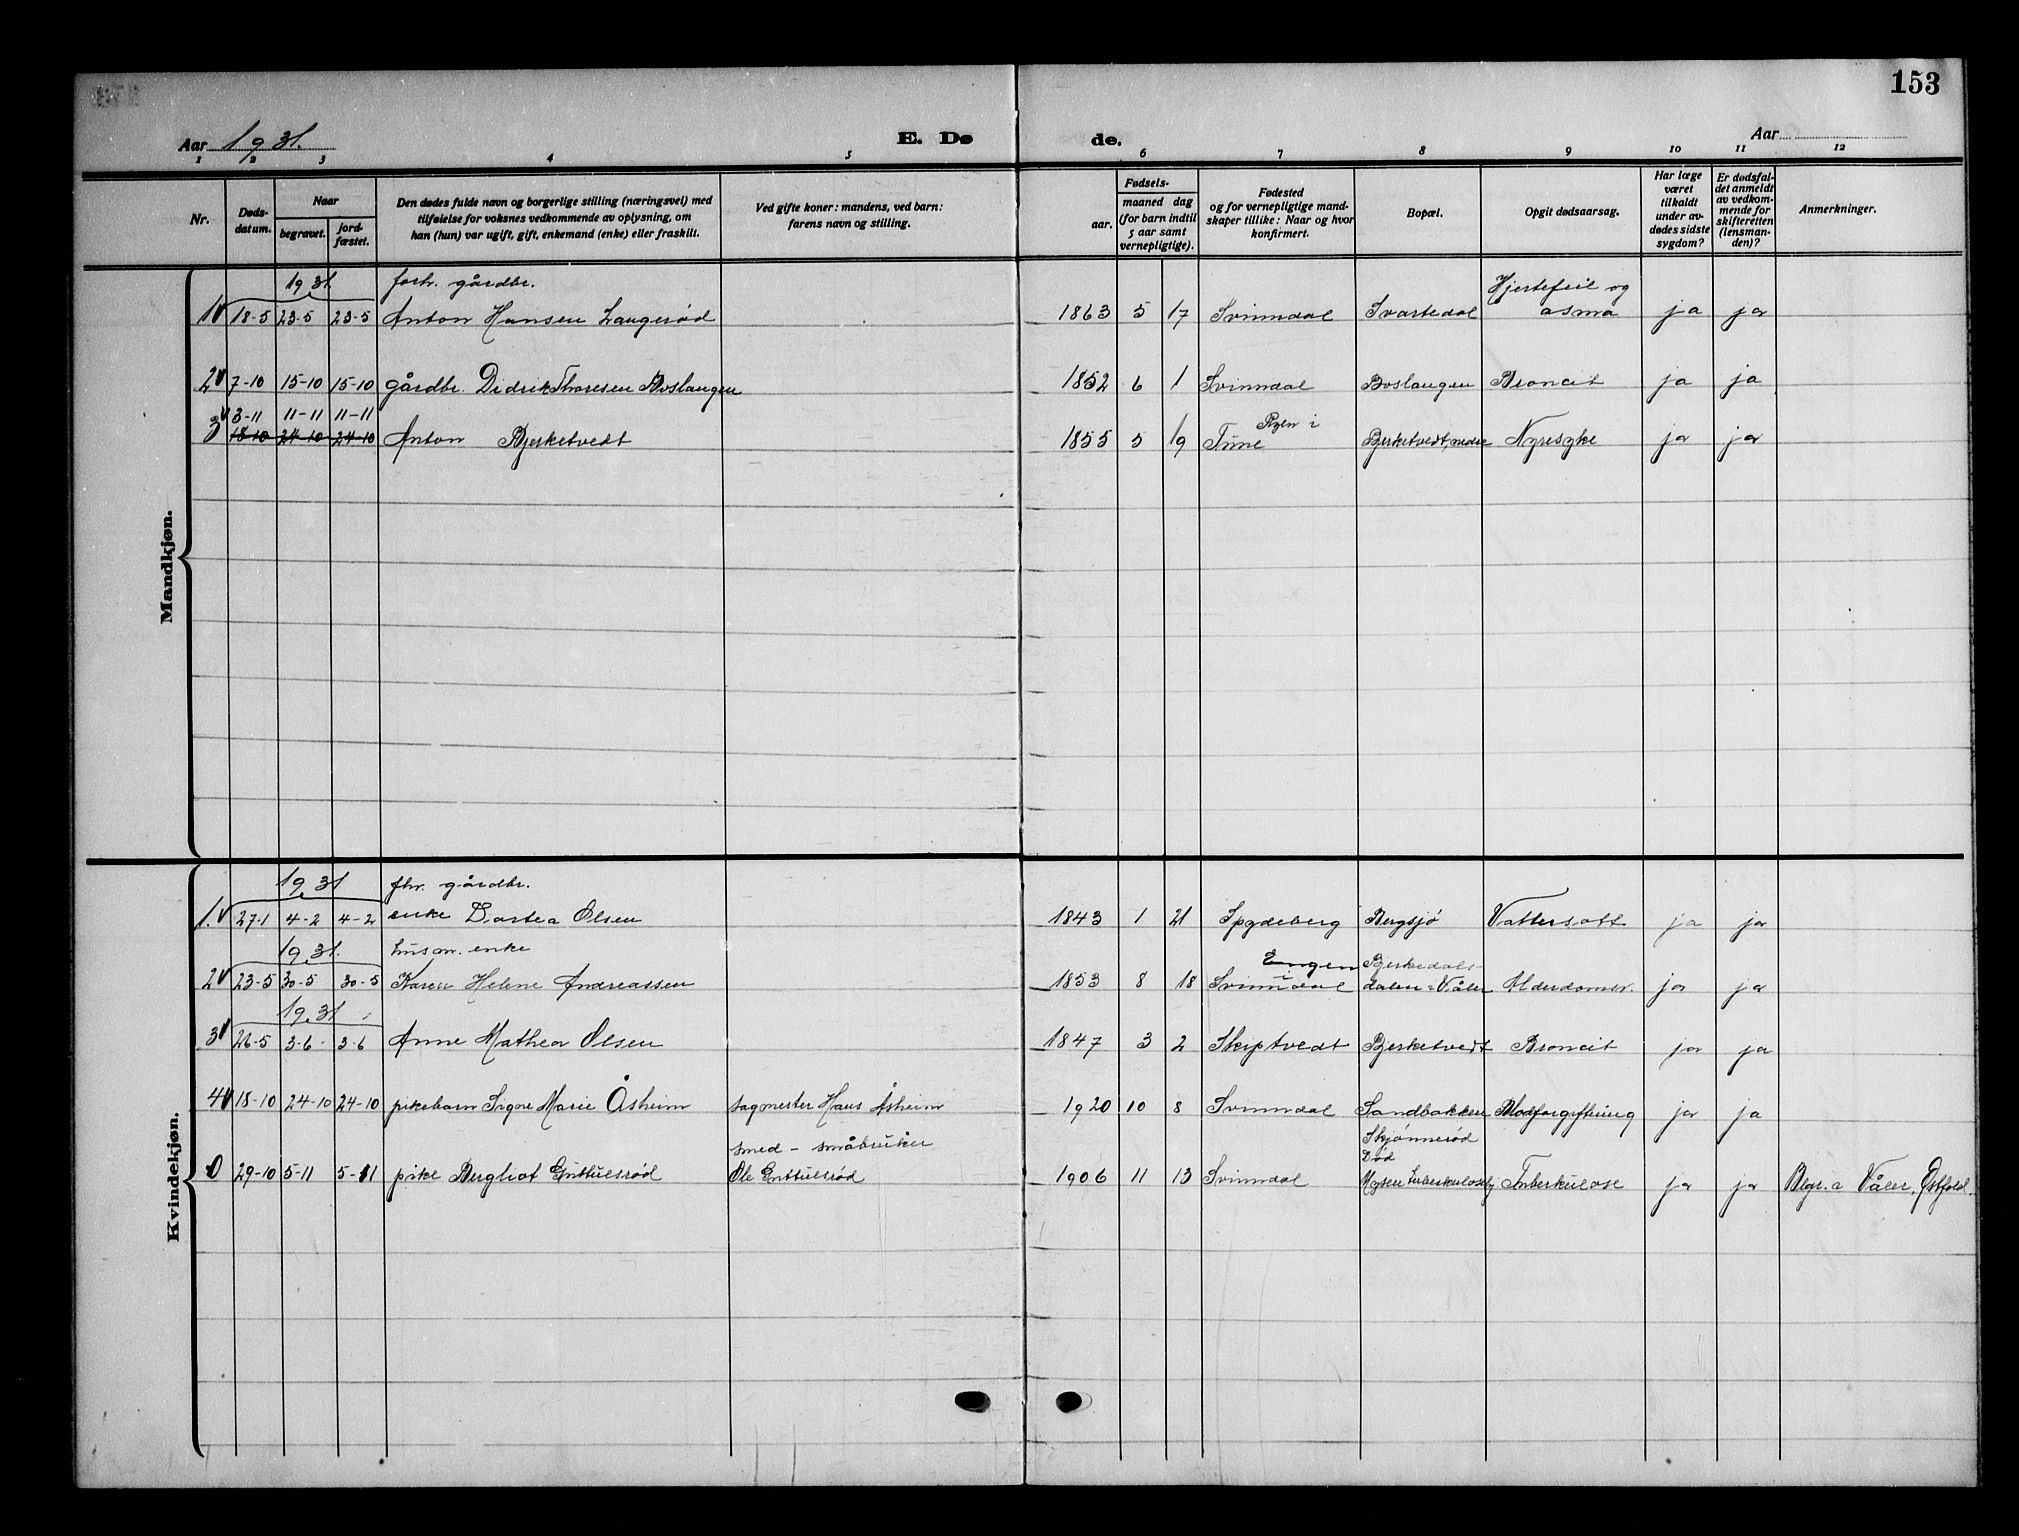 153
Aar 1931.
E. Dø
de.
Aar
1 2 3 4 5 6 7 8 9 10 11 12
Nr.
Døds-
datum.
Naar
begravet.
jord-
fæstet.
Den dødes fulde navn og borgerlige stilling (næringsvei) med
tilføielse for voksnes vedkommende av oplysning, om
han (hun) var ugift, gift, enkemand (enke) eller fraskilt.
Ved gifte koner: mandens, ved barn:
farens navn og stilling.
Fødsels-
aar.
maaned dag
(for barn indtil
5 aar samt
vernepligtige).
Fødested
og for vernepligtige mand-
skaper tillike: Naar og hvor
konfirmert.
Bopæl.
Opgit dødsaarsag.
Har læge
været
tilkaldt
under av-
dødes sidste
sygdom?
Er dødsfal-
det anmeldt
av vedkom-
mende for
skifteretten
(lensman-
den)?
Anmerkninger.
Mandkjøn.
1931 forh. gårdbr. Hjertefeil og
1 18-5 23-5 23-5 Anton Hansen Laugerød 1863 5 17 Svinndal Svartedal asma ja ja
2 7-10 15-10 15-10 gårdbr. Didrik Thoresen Boslangen 1852 6 1 Svinndal Boslangen Broncit ja ja
3-11 11-11 11-11 i
3 18-10 24-10 24-10 Anton Bjerketvedt 1855 5 19 Tune Bjerketvedt, nedre Nyresyke ja ja
Kvindekjøn.
1931 fhv. gårdbr.
1. 27-1 4-2 4-2 enke Dortea Olsen 1843 1 21 Spydeberg Bergsjø Vattersott ja ja
1931. husm. enke Engen i Bjerkedals-
2 23-5 30-5 30-5 Karen Helene Andreassen 1853 8 18 Svinndal dalen i Våler Alderdomsv. ja ja
1931
3 26-5 3-6 3-6 Anne Mathea Olsen 1847 3 2 Skiptvedt Bjerketvedt Broncit ja ja
4 18-10 24-10 24-10 pikebarn Signe Marie Åsheim sagmester Hans Åsheim 1920 10 8 Svinndal Sandbakken Blodforgiftning ja ja
smed - småbruker Skjønnerød
Død
0 29-10 5-11 5-11 pike Bergliot Guttulsrød Ole Guttulsrød 1906 11 13 Svinndal Mysen tuberkulosehj Tuberkulose ja ja Begr. i Våler, Østfold.